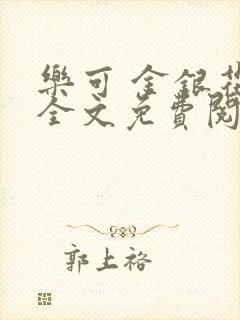 樂可 金銀花
全文免費閱
郭上裕